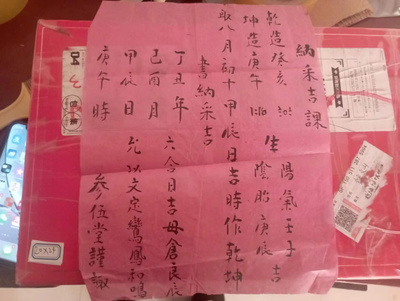 納采吉課
乾造癸亥
坤造庚午
生
陽氣壬子
陰胎庚辰
吉
取八月初十甲辰日吉時作乾坤
書納采吉
丁丑年
己酉月
甲辰日
庚午時
六合日吉母倉良辰
允以文定鸞鳳和鳴
參伍堂謹諏